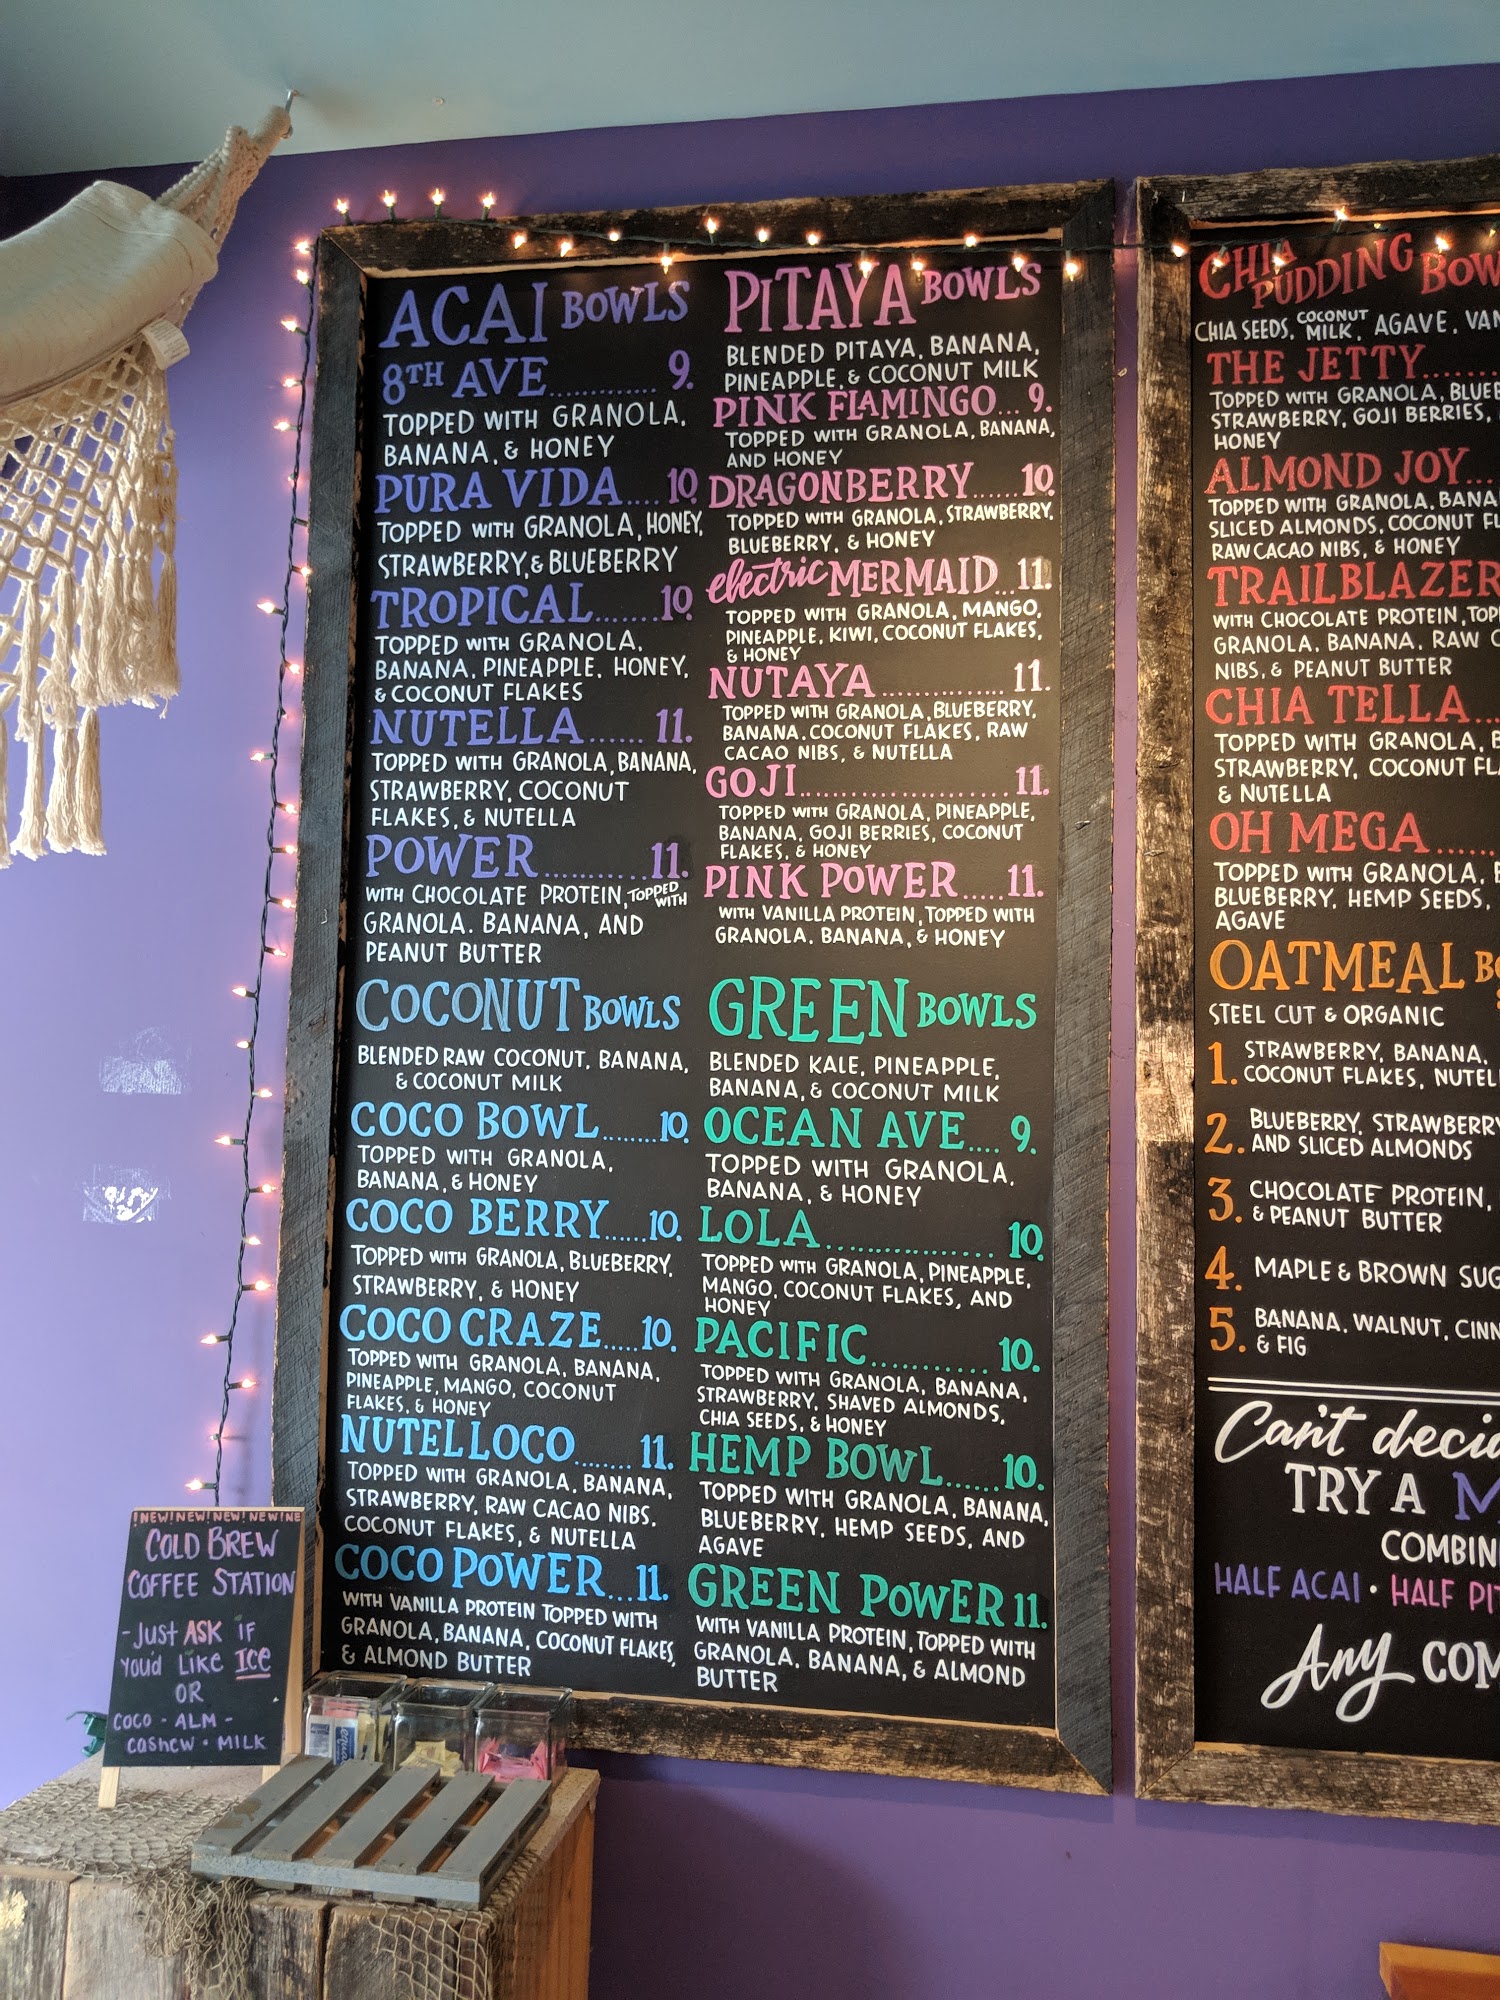 ACAI BOWLS
8TH AVE........... 9.
TOPPED WITH GRANOLA,
BANANA, & HONEY
PURA VIDA.... 10.
TOPPED WITH GRANOLA, HONEY,
STRAWBERRY, & BLUEBERRY
TROPICAL.......10.
TOPPED WITH GRANOLA,
BANANA, PINEAPPLE, HONEY,
& COCONUT FLAKES
NUTELLA...... 11.
TOPPED WITH GRANOLA, BANANA,
STRAWBERRY, COCONUT
FLAKES, & NUTELLA
POWER..........11.
WITH CHOCOLATE PROTEIN, TOPPED WITH
GRANOLA. BANANA, AND
PEANUT BUTTER
COCONUT BOWLS
BLENDED RAW COCONUT, BANANA,
& COCONUT MILK
COCO BOWL........10.
TOPPED WITH GRANOLA,
BANANA, & HONEY
COCO BERRY.....10.
TOPPED WITH GRANOLA, BLUEBERRY,
STRAWBERRY, & HONEY
COCO CRAZE.....10.
TOPPED WITH GRANOLA, BANANA,
PINEAPPLE, MANGO, COCONUT
FLAKES, & HONEY
NUTELLOCO....... 11.
TOPPED WITH GRANOLA, BANANA,
STRAWBERRY, RAW CACAO NIBS,
COCONUT FLAKES, & NUTELLA
COCO POWER...11.
WITH VANILLA PROTEIN TOPPED WITH
GRANOLA, BANANA, COCONUT FLAKES,
& ALMOND BUTTER
PITAYA BOWLS
BLENDED PITAYA, BANANA,
PINEAPPLE, & COCONUT MILK
PINK FLAMINGO... 9.
TOPPED WITH GRANOLA, BANANA,
AND HONEY
DRAGONBERRY......10.
TOPPED WITH GRANOLA, STRAWBERRY,
BLUEBERRY, & HONEY
electric MERMAID...11.
TOPPED WITH GRANOLA, MANGO,
PINEAPPLE, KIWI, COCONUT FLAKES,
& HONEY
NUTAYA.............. 11.
TOPPED WITH GRANOLA, BLUEBERRY,
BANANA, COCONUT FLAKES, RAW
CACAO NIBS, & NUTELLA
GOJI........................ 11.
TOPPED WITH GRANOLA, PINEAPPLE,
BANANA, GOJI BERRIES, COCONUT
FLAKES, & HONEY
PINK POWER.....11.
WITH VANILLA PROTEIN, TOPPED WITH
GRANOLA. BANANA, & HONEY
GREEN BOWLS
BLENDED KALE, PINEAPPLE,
BANANA, & COCONUT MILK
OCEAN AVE.... 9.
TOPPED WITH GRANOLA.
BANANA, & HONEY
LOLA................. 10.
TOPPED WITH GRANOLA, PINEAPPLE,
MANGO, COCONUT FLAKES, AND
HONEY
PACIFIC........... 10.
TOPPED WITH GRANOLA, BANANA,
STRAWBERRY, SHAVED ALMONDS,
CHIA SEEDS, & HONEY
HEMP BOWL......10.
TOPPED WITH GRANOLA, BANANA,
BLUEBERRY, HEMP SEEDS, AND
AGAVE
GREEN POWER 11.
WITH VANILLA PROTEIN, TOPPED WITH
GRANOLA. BANANA, & ALMOND
BUTTER
CHIA PUDDING BOW
CHIA SEEDS, COCONUT MILK, AGAVE, VAN
THE JETTY.......
TOPPED WITH GRANOLA, BLUEB
STRAWBERRY, GOJI BERRIES,
HONEY
ALMOND JOY...
TOPPED WITH GRANOLA, BANA
SLICED ALMONDS, COCONUT FL
RAW CACAO NIBS, & HONEY
TRAILBLAZER
WITH CHOCOLATE PROTEIN, TOP
GRANOLA, BANANA, RAW C
NIBS, & PEANUT BUTTER
CHIA TELLA...
TOPPED WITH GRANOLA, B
STRAWBERRY, COCONUT FLA
& NUTELLA
OH MEGA......
TOPPED WITH GRANOLA, B
BLUEBERRY, HEMP SEEDS,
AGAVE
OATMEAL BO
STEEL CUT & ORGANIC
1. STRAWBERRY, BANANA,
COCONUT FLAKES, NUTEL
2. BLUEBERRY, STRAWBERRY
AND SLICED ALMONDS
3. CHOCOLATE PROTEIN,
& PEANUT BUTTER
4. MAPLE & BROWN SUG
5. BANANA, WALNUT, CINN
& FIG
Can't decid
TRY A M
COMBIN
HALF ACAI • HALF PIT
Any COM
!NEW!NEW!NEW!NEW!NE
COLD BREW
COFFEE STATION
-JUST ASK IF
YOU'D LIKE ICE
OR
COCO - ALM -
CASHEW • MILK